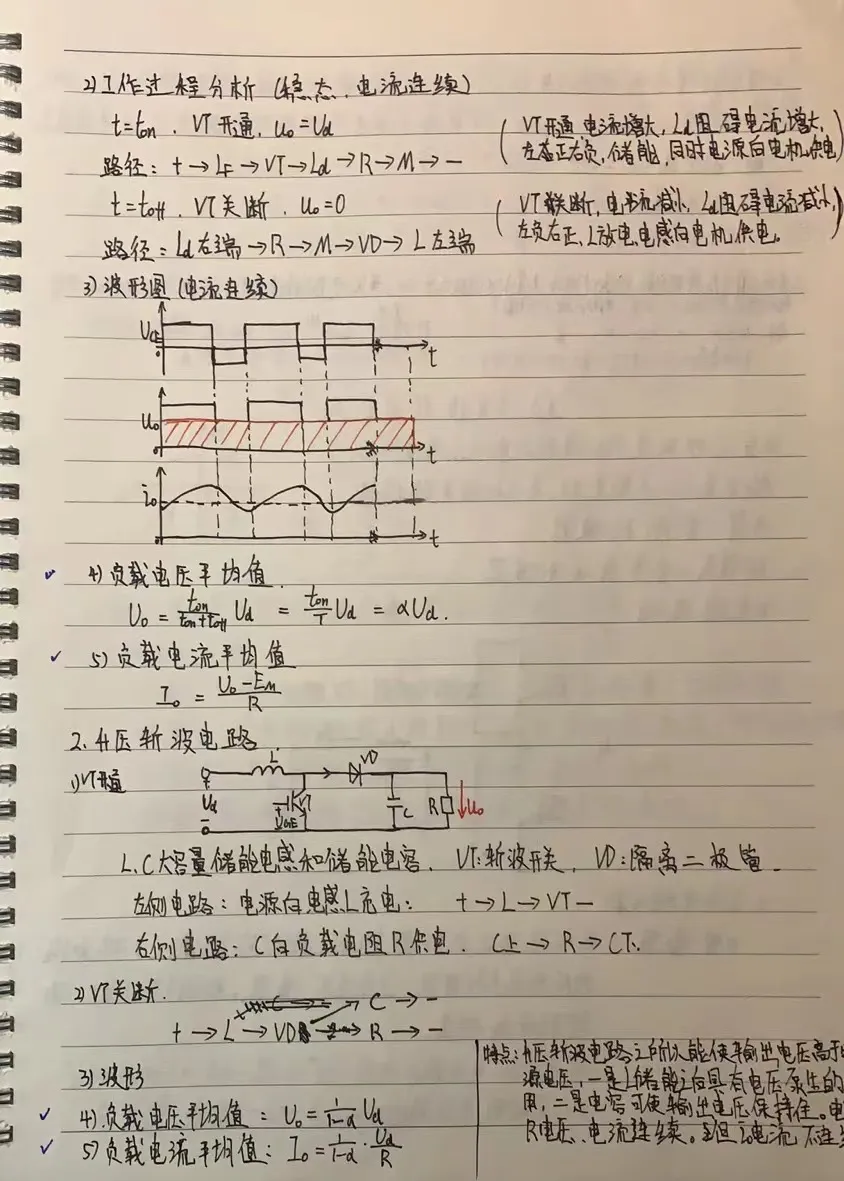 2) 工作过程分析 (稳态、电流连续)
t=ton、VT开通、uo=Ud
(VT开通 电流增大, Ld阻碍电流增大,
左正右负, 储能, 同时电源向电机供电)
路径: + → LF → VT → Ld → R → M → −
t=toff、VT关断、uo=0
(VT关断, 电流减小, Ld阻碍电流减小,
左负右正, L放电, 电感向电机供电。)
路径: Ld右端 → R → M → VD → L左端
3) 波形图 (电流连续)
UGE
t
uo
t
io
t
4) 负载电压平均值.
Uo = ton/(ton+toff) Ud = ton/T Ud = αUd.
5) 负载电流平均值
Io = (Uo−EM)/R
2. 升压斩波电路.
1) VT开通
L VD
Ud VT UGE C R uo
L、C大容量储能电感和储能电容、VT: 斩波开关、VD: 隔离二极管.
左侧电路: 电源向电感L充电: + → L → VT −
右侧电路: C向负载电阻R供电. C上 → R → C下.
2) VT关断.
C → −
+ → L → VD → R → −
3) 波形
4). 负载电压平均值: Uo = 1/(1−α) Ud
5) 负载电流平均值: Io = 1/(1−α) · Ud/R
特点: 升压斩波电路之所以能使输出电压高于
源电压, 一是L储能之后具有电压泵生的
用, 二是电容可使输出电压保持住。
R电压、电流连续。但io电流不连